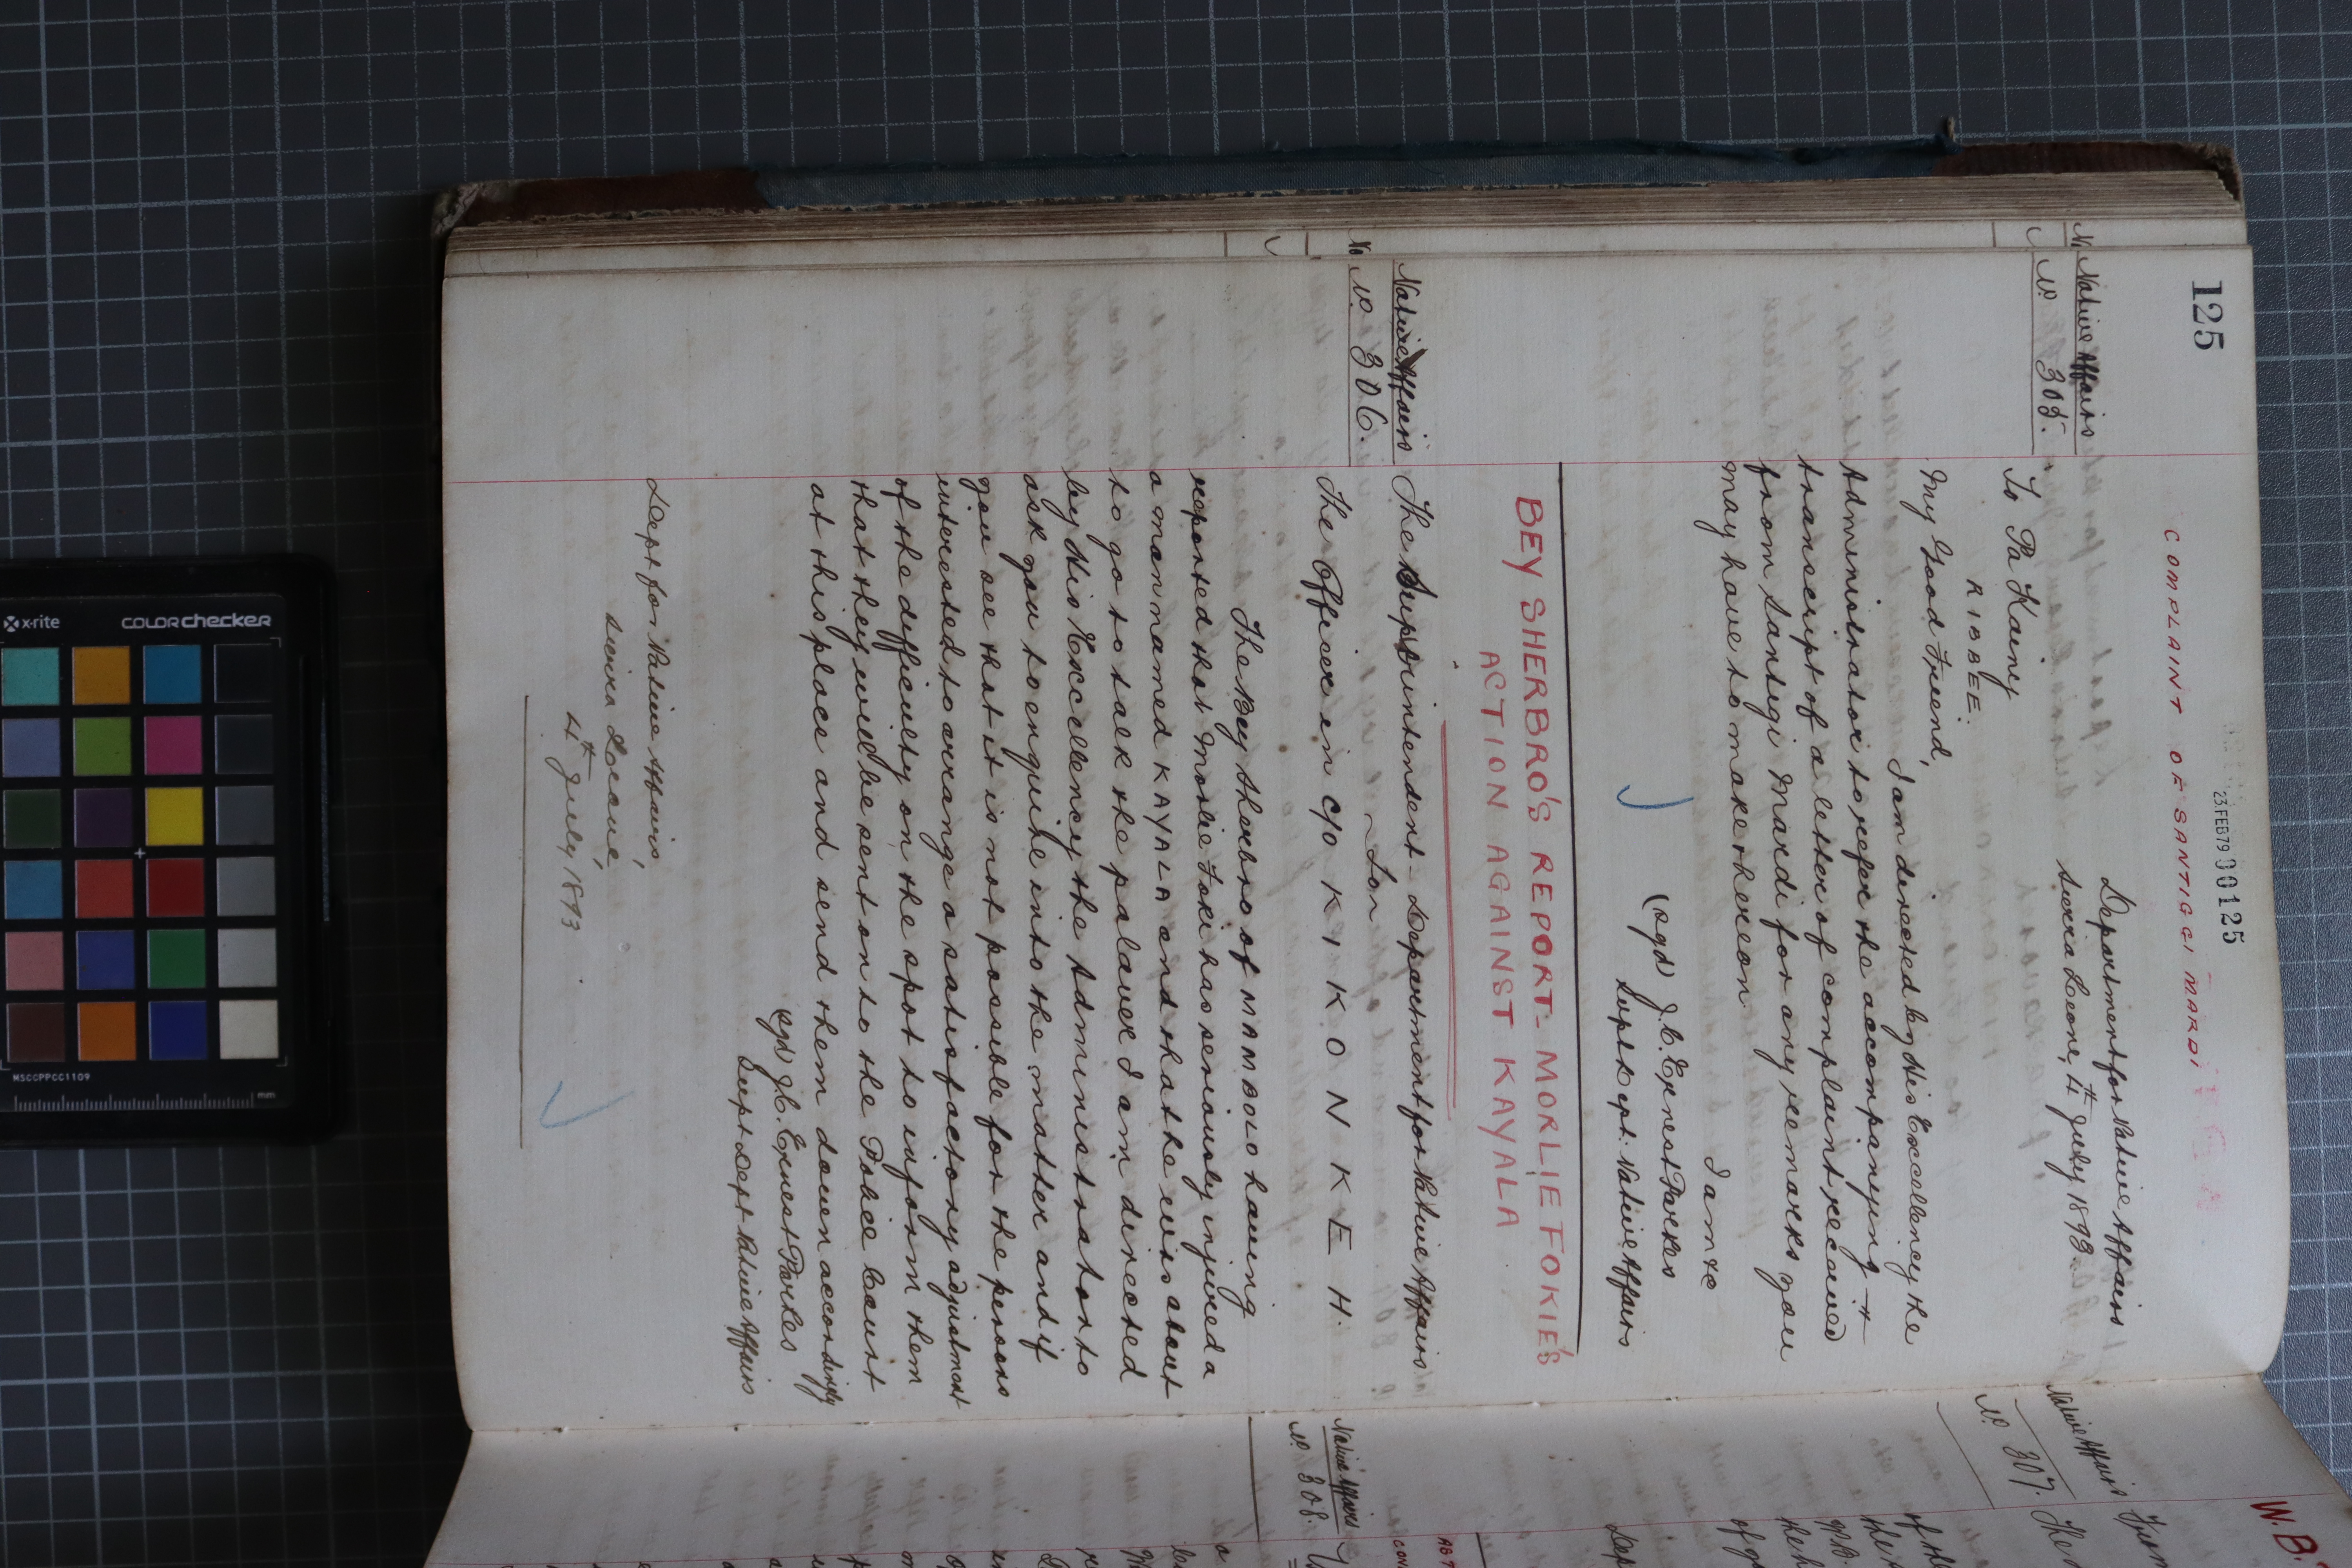 125
23 FEB 79 00125
COMPLAINT OF SANTIGGI MARDI
Department for Native Affairs
Sierra Leone, 4th July 1893.
Native Affairs
No. 305.
To Pa Kainy
RIBBEE.
My Good Friend,
I am directed by His Excellency the
Administrator to refer the accompanying
transcript of a letter of complaint received
from Santigi Mardi for any remarks you
may have to make thereon.
I am &c
(sgd) J. C. Ernest Parkes
Supt Dept. Native Affairs
BEY SHERBRO'S REPORT - MORLIE FOKIE'S
ACTION AGAINST KAYALA
Native Affairs
No. 306.
The Superintendent - Department for Native Affairs
For
The Officer in c/o KIKKONKEH.
The Bey Sherbro of MAMBOLO having
reported that Morlie Foki has seriously injured a
a man named KAYALA and that he was about
to go to talk the palaver I am directed
by His Excellency the Administrator to
ask you to enquire into the matter and if
you see that it is not possible for the persons
interested to arrange a satisfactory adjustment
of the difficulty on the spot to inform them
that they will be sent on to the Police Court
at this place and send them down accordingly
(sgd) J. C. Ernest Parkes
Supt Dept Native Affairs
Dept for Native Affairs,
Sierra Leone,
4th July 1893
Native Affairs
No. 307.
Native Affairs
No. 308.
x-rite
COLORchecker
MSCCPPCC1109
mm